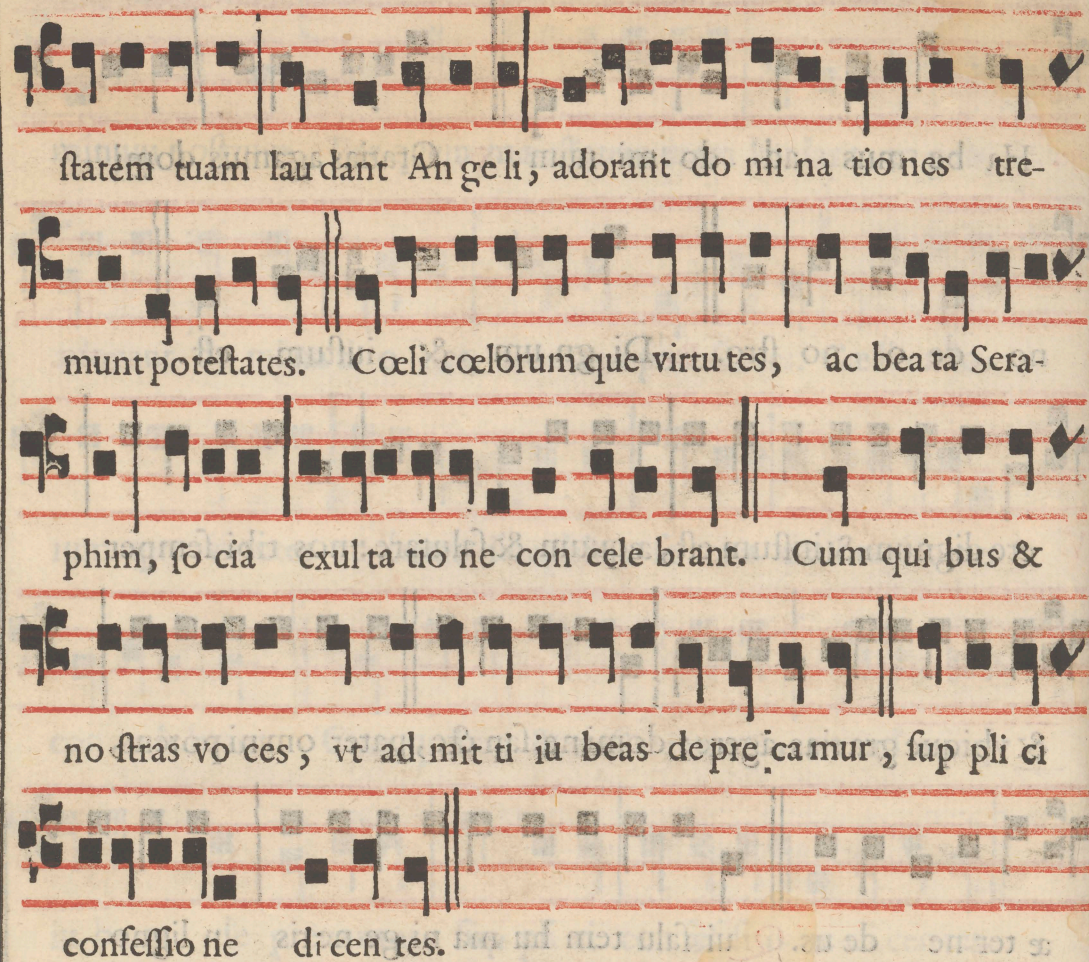 ſtatem tuam lau dant An ge li, adorant do mi na tio nes tre-
munt poteſtates. Cœli cœlorum que virtu tes, ac bea ta Sera-
phim, ſo cia exul ta tio ne con cele brant. Cum qui bus &
no ſtras vo ces, vt ad mit ti iu beas de pre ca mur, ſup pli ci
confeſſio ne di cen tes.